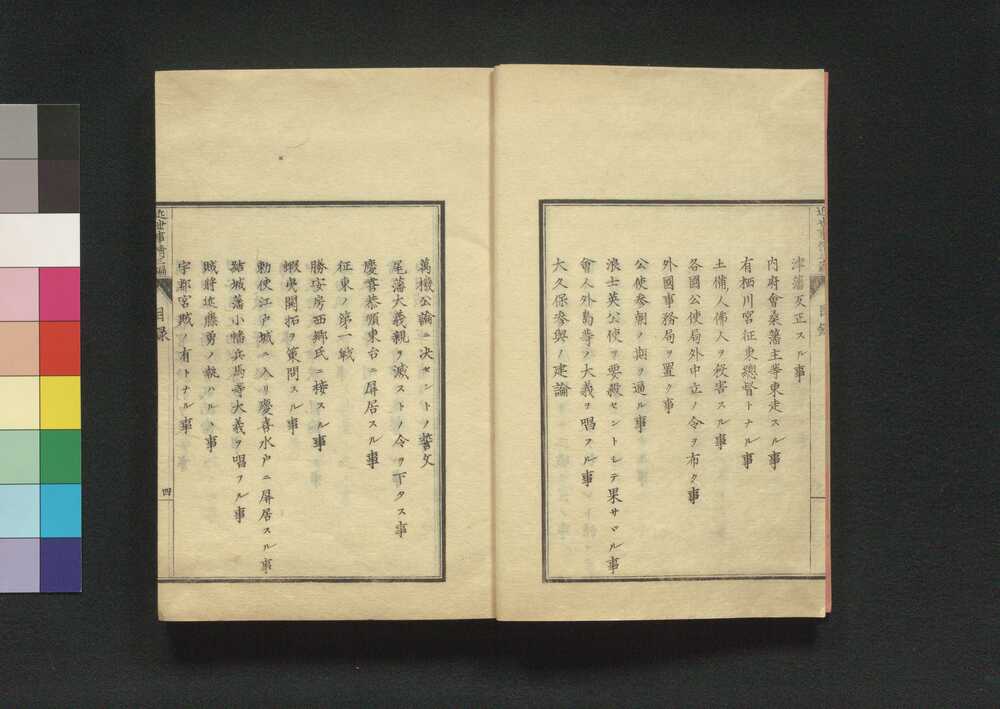 津藩反正スル事
内府會桑藩主等東走スル事
有栖川宮征東總督トナル事
土備人佛人ヲ殺害スル事
各國公使局外中立ノ令ヲ布ク事
外國事務局ヲ置ク事
公使参朝ノ期ヲ過ル事
浪士英公使ヲ要殿セントシテ果サヽル事
會人外島等ノ大義ヲ唱スル事
大久保参與ノ建論
萬機公論ニ决セントノ誓文
尾藩大義親ヲ滅ストノ令ヲ下タス事
慶喜恭順東台ニ屏居スル事
征東ノ第一戦
勝安房西郷氏ニ接スル事
蝦夷開拓ヲ策問スル事
勅使江戸城ニ入リ慶喜水戸ニ屏居スル事
結城藩小幡兵馬等大義ヲ唱フル事
賊將近藤勇ノ執ハルヽ事
宇都宮賊ノ有トナル事
近世事情三編
目録
四